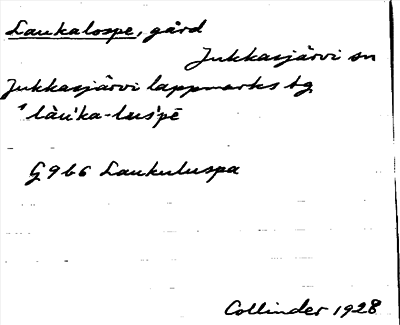 Laukalospe, gård
Jukkasjärvi sn
Jukkasjärvi lappmarks tg
G966 Laukuluspa
Collinder 1928